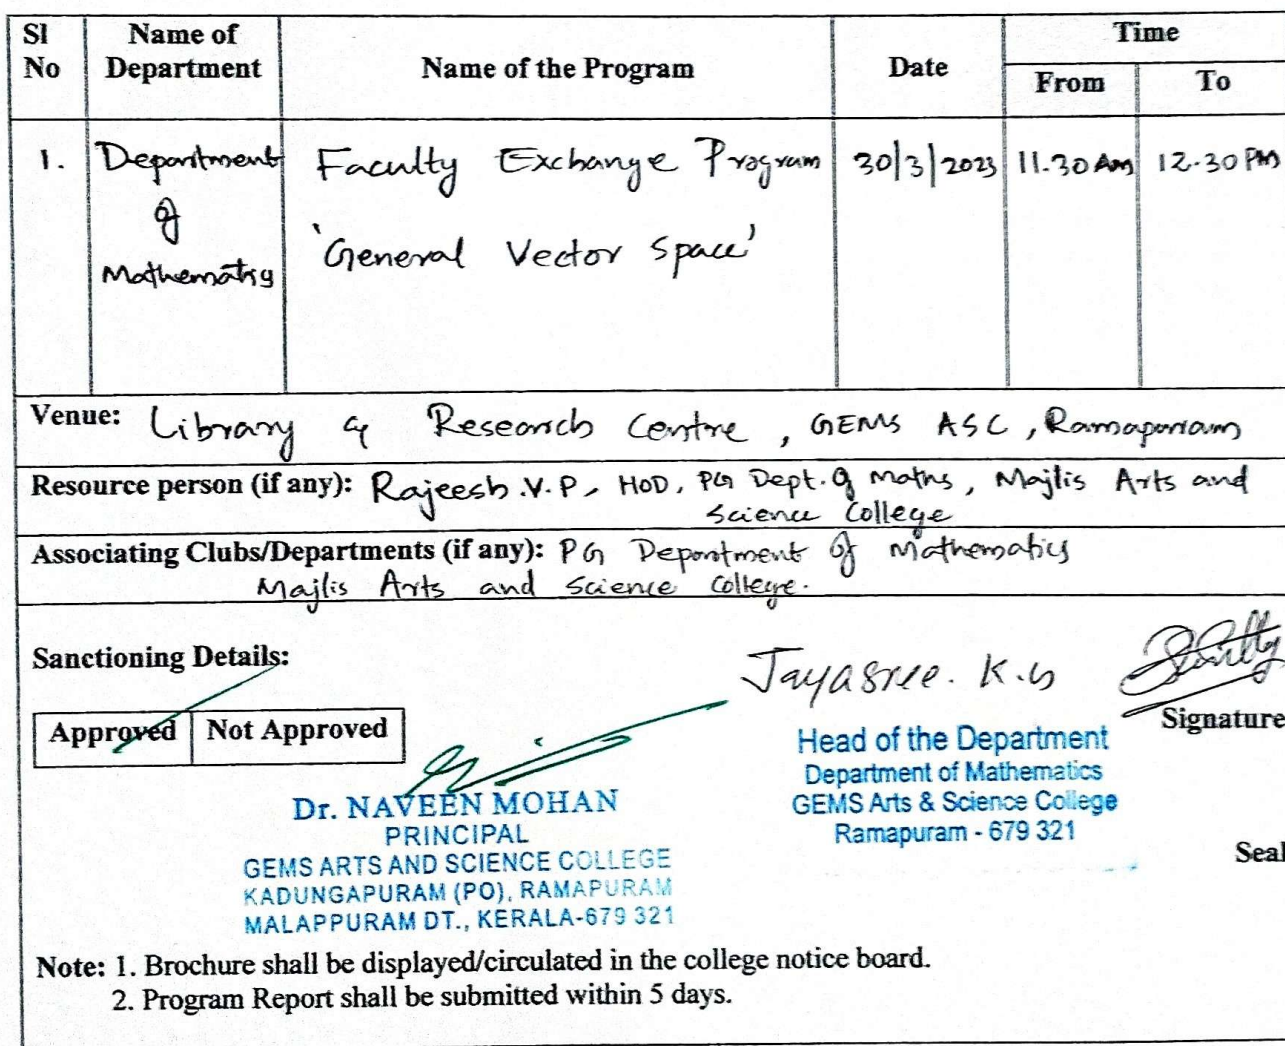 Sl No
Name of Department
Name of the Program
Date
Time
From
To
1.
Department of Mathematics
Faculty Exchange Program
'General Vector Space'
30/3/2023
11.30 AM
12.30 PM
Venue: Library & Research Centre, GEMS ASC, Ramapuram
Resource person (if any): Rajeesh.V.P, HOD, PG Dept. of Maths, Majlis Arts and
Science College
Associating Clubs/Departments (if any): PG Department of Mathematics
Majlis Arts and Science College.
Sanctioning Details:
Approved
Not Approved
Jayasree. K.
Signature
Head of the Department
Department of Mathematics
GEMS Arts & Science College
Ramapuram - 679 321
Seal
Dr. NAVEEN MOHAN
PRINCIPAL
GEMS ARTS AND SCIENCE COLLEGE
KADUNGAPURAM (PO), RAMAPURAM
MALAPPURAM DT., KERALA-679 321
Note: 1. Brochure shall be displayed/circulated in the college notice board.
2. Program Report shall be submitted within 5 days.